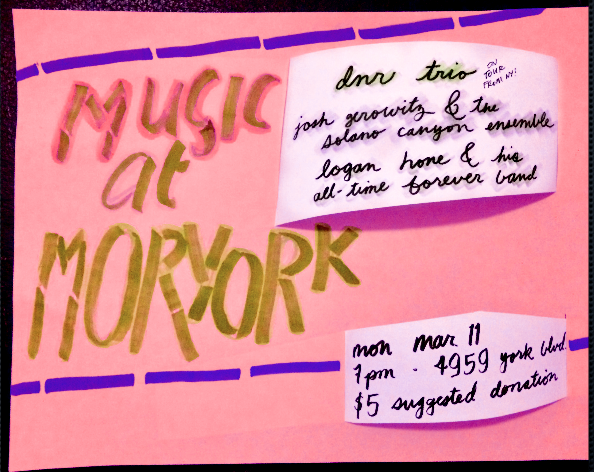 MUSIC
at
MORYORK
dnr trio
ON
TOUR
FROM NY!
josh gerowitz & the
solano canyon ensemble
logan hone & his
all-time forever band
mon mar 11
7pm - 4959 york blvd.
$5 suggested donation